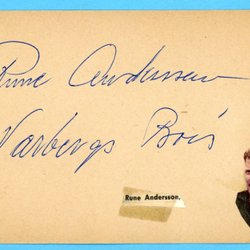 Rune Andersson
Varbergs Bois
Rune Andersson.